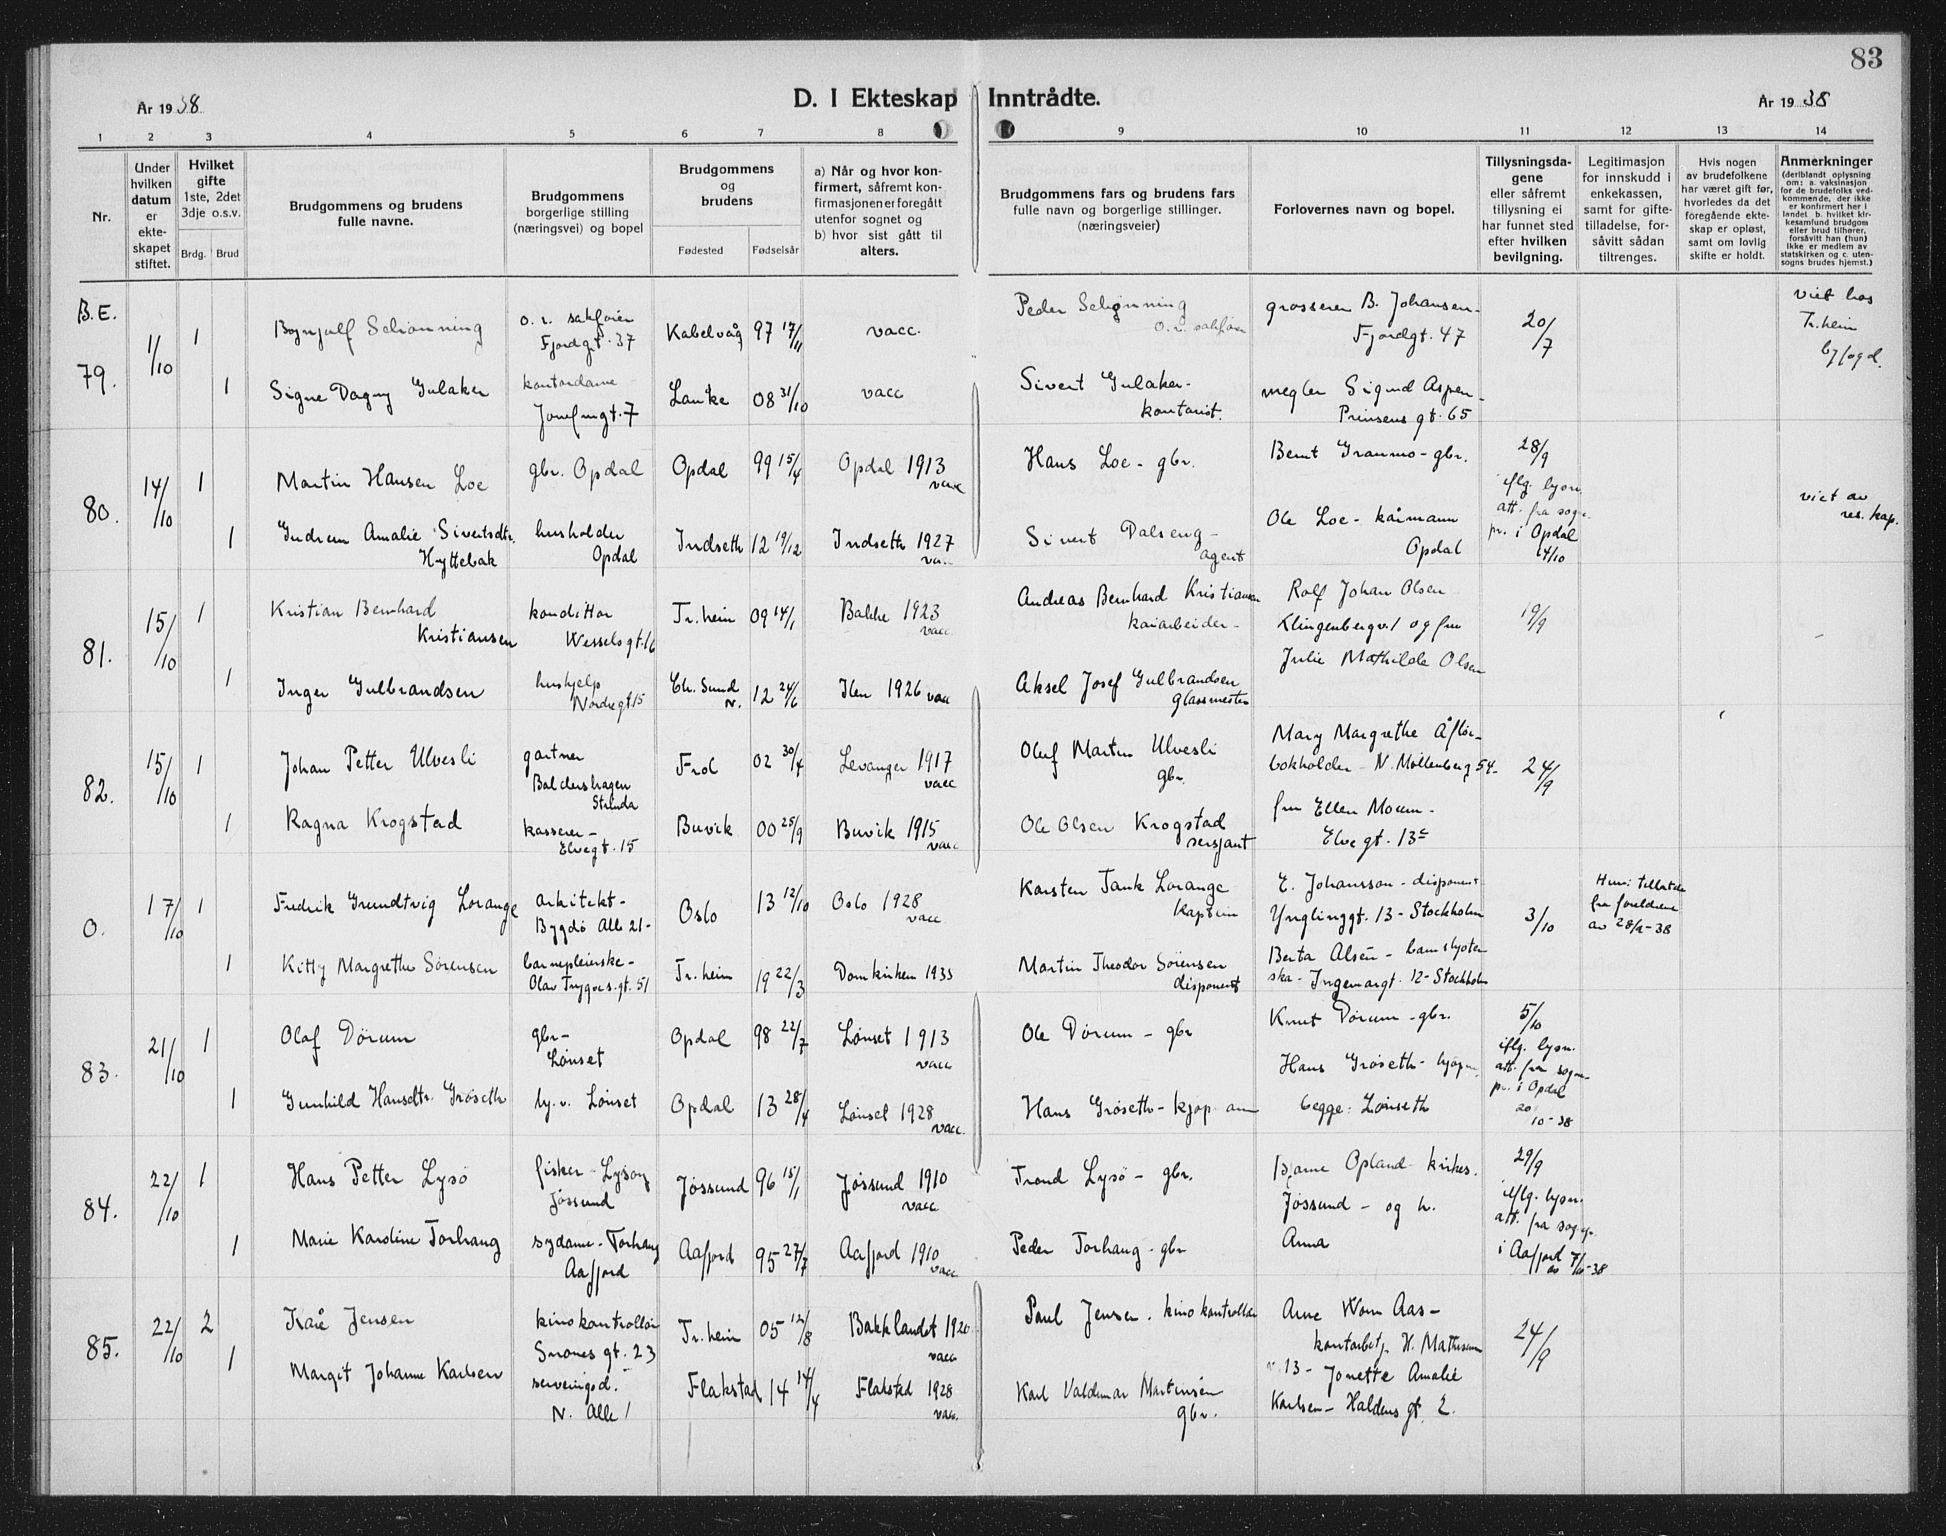 83
År 1938
D. I Ekteskap Inntrådte.
År 1938
1 2 3 4 5 6 7 8 9 10 11 12 13 14
Nr.
Under hvilken datum er ekte-skapet stiftet.
Hvilket gifte 1ste, 2det 3dje o.s.v.
Brdg. Brud
Brudgommens og brudens fulle navne.
Brudgommens borgerlige stilling (næringsvei) og bopel
Brudgommens og brudens
Fødested Fødselsår
a) Når og hvor kon-firmert, såfremt kon-firmasjonen er foregått utenfor sognet og b) hvor sist gått til alters.
Brudgommens fars og brudens fars fulle navn og borgerlige stillinger. (næringsveier)
Forlovernes navn og bopel.
Tillysningsda-gene eller såfremt tillysning ei har funnet sted efter hvilken bevilgning.
Legitimasjon for innskudd i enkekassen, samt for gifte-tilladelse, for-såvitt sådan tiltrenges.
Hvis nogen av brudefolkene har været gift før, hvorledes da det foregående ekte-skap er opløst, samt om lovlig skifte er holdt.
Anmerkninger (deriblandt oplysning om: a. vaksinasjon for de brudefolks ved-kommende, der ikke er konfirmert her i landet. b. hvilket kir-kesamfund brudgom eller brud tilhører, forsåvitt han (hun) ikke er medlem av statskirken og c. uten-sogns brudes hjemst.)
B.E.
79. 1/10 1 Schønning o.r. sakfører Fjordgt. 37 Kabelvåg 97 17/11 vacc. Peder Schønning o.r. sakfører grosserer B. Johansen - Fjordgt. 47 20/7 viet hos Tr.heim byfogd.
1 Signe Dagny Gulaker kontordame 7 08 31/10 vacc Sivert Gulaker - kontorist. megler Sigurd Aspen - Prinsens gt. 65
80. 14/10 1 Martin Hansen Loe gbr. Opdal Opdal 99 15/4 Opdal 1913 vacc Hans Loe - gbr. Bernt Granmo - gbr. 28/9 iflg. lysn. att. fra sogne-pr. i Opdal 14/10 viet av res. kap.
1 Gudrun Amalie Sivertsdtr. Hyttebak husholder Opdal Indseth 12 19/12 Indseth 1927 Sivert Dalseng - agent Ole Loe - kårmann Opdal
81. 15/10 1 Kristian Bernhard Kristiansen konditor Wessels gt. 16 Tr.heim 09 14/1 Bakke 1923 vacc Andreas Bernhard Kristiansen kaiarbeider - Rolf Johan Olsen Klingenbergv. 1 og fru Julie Mathilde Olsen 19/9
1 Inger Gulbrandsen hushjelp Nordregt. 15 Chr. Sund N. 12 24/6 Ilen 1926 vacc Aksel Josef Gulbrandsen glassmester
82. 15/10 1 Johan Petter Ulvesli gartner Baldershagen Strinda Frol 02 30/4 Levanger 1917 vacc Oluf Martin Ulvesli gbr. Mary Margrethe Åflør - bokholder - N. Møllenberg 54 - 24/9
1 Ragna Krogstad kasserer - Elvegt. 15 Buvik 00 25/9 Buvik 1915 vacc Ole Olsen Krogstad sersjant fru Ellen Moum - Elvegt. 13c
O. 17/10 1 Fredrik Grundtvig Lorange arkitekt - Bygdø Alle 21 - Oslo 13 12/10 Oslo 1928 vacc Karsten Tank Lorange kaptein E. Johansson - disponent Ynglinggt. 13 - Stockholm 3/10 fra foreldrene av 28/9-38
1 Kitty Margrethe Sørensen barnepleierske - Olav Trygves. gt. 51 Tr.heim 19 22/3 Domkirken 1935 Martin Theodor Sørensen disponent Berta Alsén - barnskjøter-ska - Ingemargt. 12 - Stockholm
83. 21/10 1 Olaf Dørum gbr - Lønset Opdal 98 22/7 Lønset 1913 vacc Ole Dørum - gbr Knut Dørum - gbr. 5/10 iflg. lysn. att. fra sogne-pr. i Opdal 20/10-38
1 Gunhild Hansdtr. Grøseth hj.v. Lønset Opdal 13 28/4 Lønset 1928 vacc. Hans Grøseth - kjøpmann Hans Grøseth - kjøpm. begge: Lønseth
84. 22/10 1 Hans Petter Lysø fisker - Lysøy Jøssund Jøssund 96 15/1 Jøssund 1910 vacc Trond Lysø - gbr. Bjarne Opland - kirkes. Jøssund - og h. Anna 29/9 iflg. lysn. att. fra sognepr. i Aafjord av 7/10-38
1 Marie Karoline Torhaug sydame - Torhaug Aafjord Aafjord 95 27/7 Aafjord 1910 vacc Peder Torhaug - gbr
85. 22/10 2 Kåre Jensen kinokontrollør Snones gt. 23 Tr.heim 05 12/8 Bakklandet 1920 vacc Paul Jensen - kinokontrollør Arne Worn Aas - kontorbetj. H. Mathisens v 13 - Jonette Amalie Karlsen - Haldens gt. 2. 24/9
1 Margit Johanne Karlsen serveringsd. N. Alle 1 Flakstad 14 14/4 Flakstad 1928 vacc. Karl Valdemar Martinsen gbr.